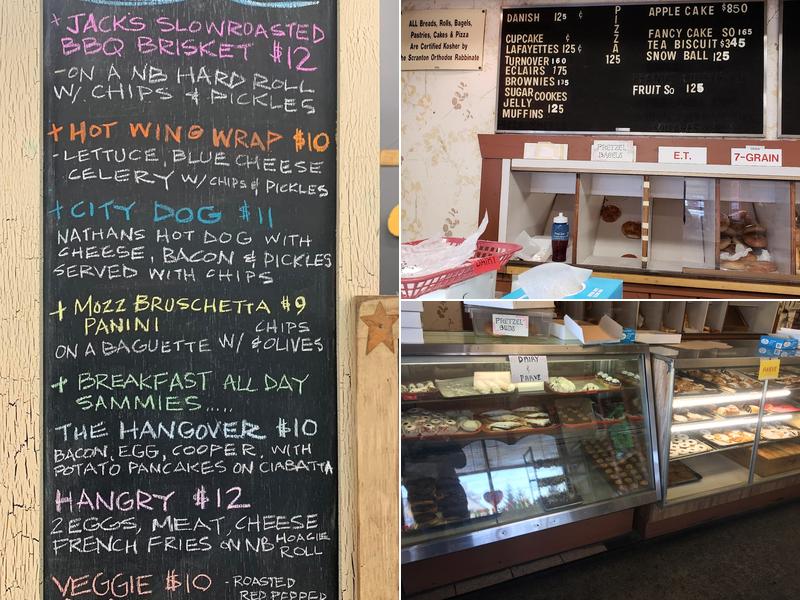 + JACKS SLOWROASTED
BBQ BRISKET $12
-ON A NB HARD ROLL
W/ CHIPS & PICKLES
+ HOT WING WRAP $10
-LETTUCE, BLUE CHEESE
CELERY W/ CHIPS & PICKLES
+ CITY DOG $11
NATHANS HOT DOG WITH
CHEESE, BACON & PICKLES
SERVED WITH CHIPS
+ MOZZ BRUSCHETTA $9
PANINI
CHIPS
ON A BAGUETTE W/ & OLIVES
+ BREAKFAST ALL DAY
SAMMIES.....
THE HANGOVER $10
BACON, EGG, COOPER, WITH
POTATO PANCAKES ON CIABATTA
HANGRY $12
2 EGGS, MEAT, CHEESE
FRENCH FRIES ON NB HOAGIE
ROLL
VEGGIE $10 - ROASTED
RED PEPPED
ALL Breads, Rolls, Bagels,
Pastries, Cakes & Pizza
Are Certified Kosher by
the Scranton Orthodox Rabbinate
DANISH 125 ¢
CUPCAKE ¢
LAFAYETTES 125 ¢
TURNOVER 160
ECLAIRS 175
BROWNIES 135
SUGAR COOKES
JELLY
MUFFINS 125
PIZZA
125
APPLE CAKE $850
FANCY CAKE SO 165
TEA BISCUIT $345
SNOW BALL 125
FRUIT So 125
PRETZEL
BAGELS
E.T.
7-GRAIN
DAIRY
PRETZEL
BUNS
DAIRY
&
PARVE
PARVE